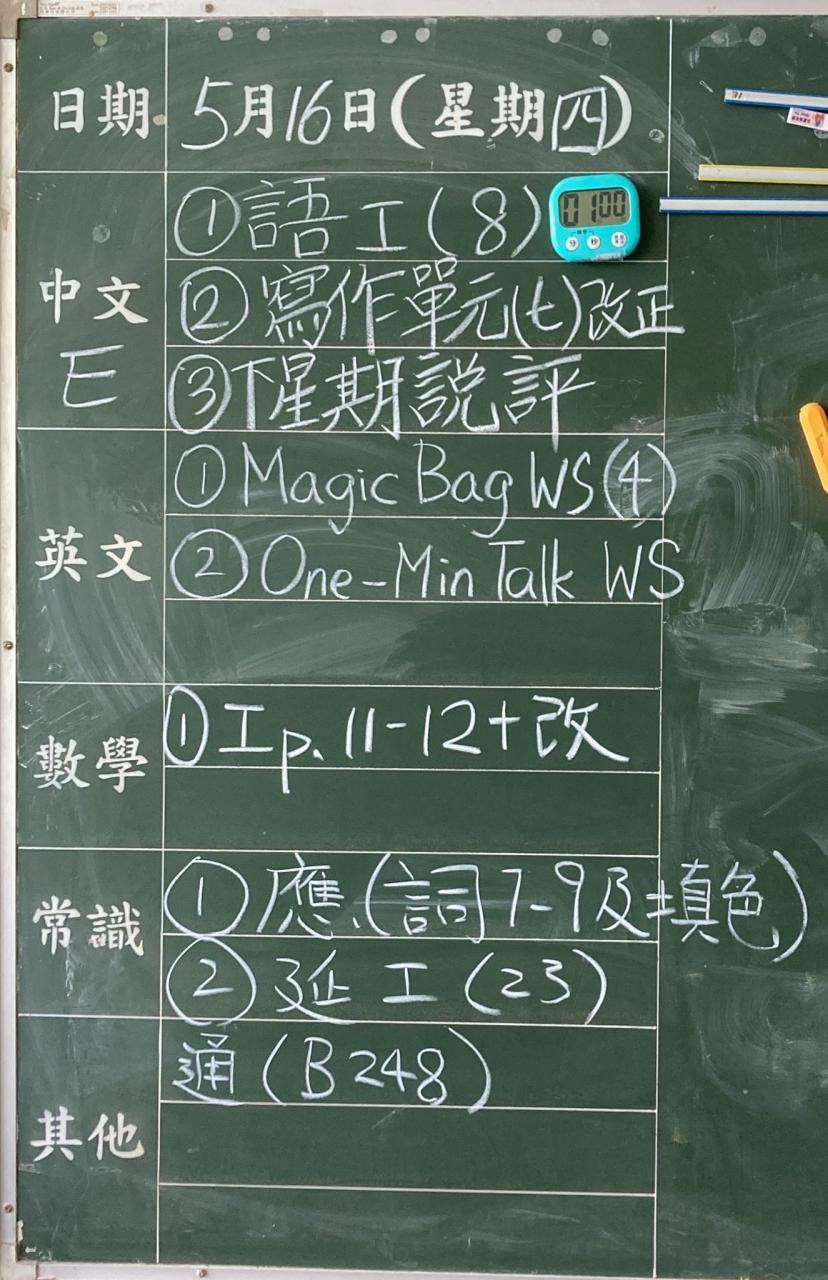 日期 5月16日(星期四)
中文 E
①語工(8)
②寫作單元(七)改正
③下星期説評
英文
①Magic Bag WS(4)
②One-Min Talk WS
數學
①工p.11-12+改
常識
①應.(詞7-9及填色)
②延工(23)
其他
通(B248)
0100
分 秒